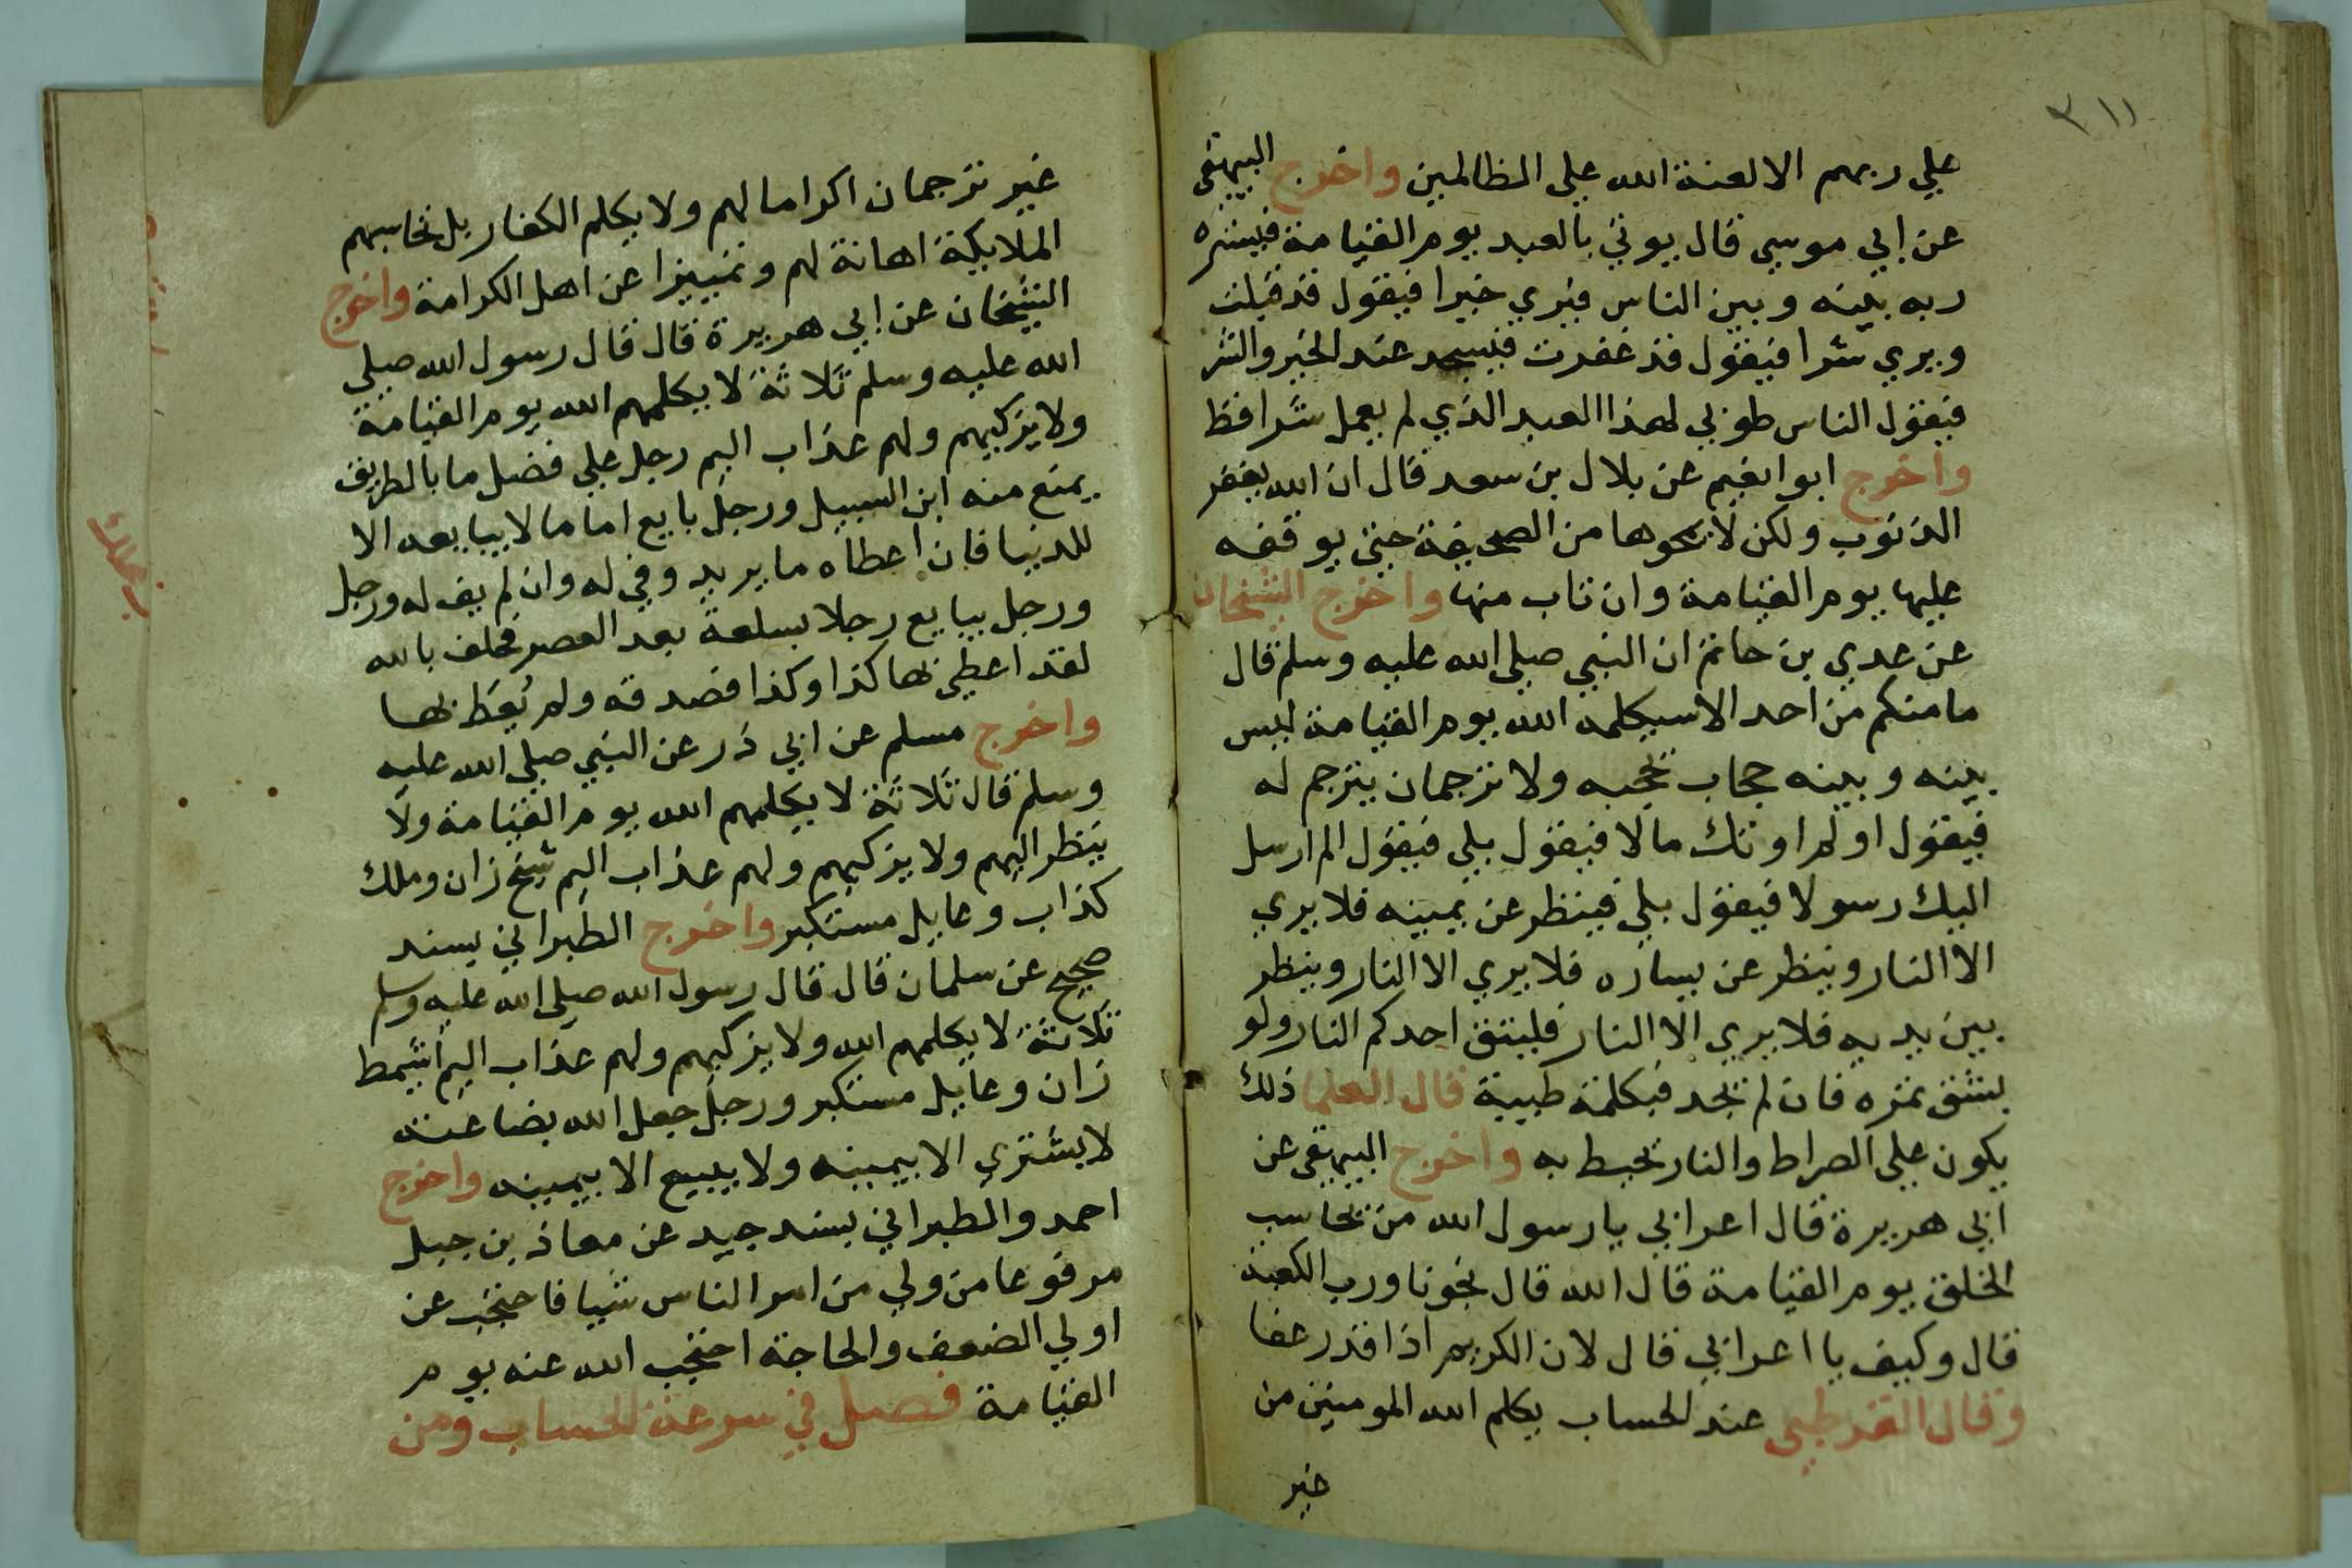 ٣١١
علي ربهم الا لعنة الله علي الظالمين واخرج البيهقي
عن ابي موسي قال يوتي بالعبد يوم القيامة فيستره
ربه بينه وبين الناس فيري خيرا فيقول قد قبلت
ويري شرا فيقول قد غفرت فيسجد عند الخير والشر
فيقول الناس طوبي لهذا العبد الذي لم يعمل شرا قط
واخرج ابو انعيم عن بلال بن سعد قال ان الله يغفر
الذنوب ولكن لا يمحوها من الصحيفة حتي يوقفه
عليها يوم القيامة وان تاب منها واخرج الشيخان
عن عدي بن حاتم ان النبي صلي الله عليه وسلم قال
ما منكم من احد الا سيكلمه الله يوم القيامة ليس
بينه وبينه حجاب يحجبه ولا ترجمان يترجم له
فيقول اولم اوتك مالا فيقول بلي فيقول الم ارسل
اليك رسولا فيقول بلي فينظر عن يمينه فلا يري
الا النار وينظر عن يساره فلا يري الا النار وينظر
بين يديه فلا يري الا النار فليتق احدكم النار ولو
بشق تمره فان لم يجد فبكلمة طيبة قال العلما ذلك
يكون علي الصراط والنار تحيط به واخرج البيهقي عن
ابي هريرة قال اعرابي يا رسول الله من يحاسب
الخلق يوم القيامة قال الله قال نجونا ورب الكعبة
قال وكيف يا اعرابي قال لان الكريم اذا قدر عفا
وقال القرطبي عند الحساب يكلم الله المومنين من
غير
غير ترجمان اكراما لهم ولا يكلم الكفار بل تحاسبهم
الملايكة اهانة لهم وتمييزا عن اهل الكرامة واخرج
الشيخان عن ابي هريرة قال قال رسول الله صلي
الله عليه وسلم ثلاثة لا يكلمهم الله يوم القيامة
ولا يزكيهم ولهم عذاب اليم رجل علي فضل ما بالطريق
يمنع منه ابن السبيل ورجل بايع اماما لا يبايعه الا
للدنيا فان اعطاه ما يريد وفي له وان لم يف له ورجل
ورجل يبايع رجلا بسلعة بعد العصر فحلف بالله
لقد اعطي بها كذا وكذا فصدقه ولم يُعط بها
واخرج مسلم عن ابي ذر عن النبي صلي الله عليه
وسلم قال ثلاثة لا يكلمهم الله يوم القيامة ولا
ينظر اليهم ولا يزكيهم ولهم عذاب اليم شيخ زان وملك
كذاب وعايل مستكبر واخرج الطبراني بسند
صحيح عن سلمان قال قال رسول الله صلي الله عليه وسلم
ثلاثة لا يكلمهم الله ولا يزكيهم ولهم عذاب اليم اشيمط
زان وعايل مستكبر ورجل جعل الله بضاعته
لا يشتري الا بيمينه ولا يبيع الا بيمينه واخرج
احمد والطبراني بسند جيد عن معاذ بن جبل
مرفوعا من ولي من امر الناس شيا فاحتجب عن
اولي الضعف والحاجة احتجب الله عنه يوم
القيامة فصل في سرعة الحساب ومن